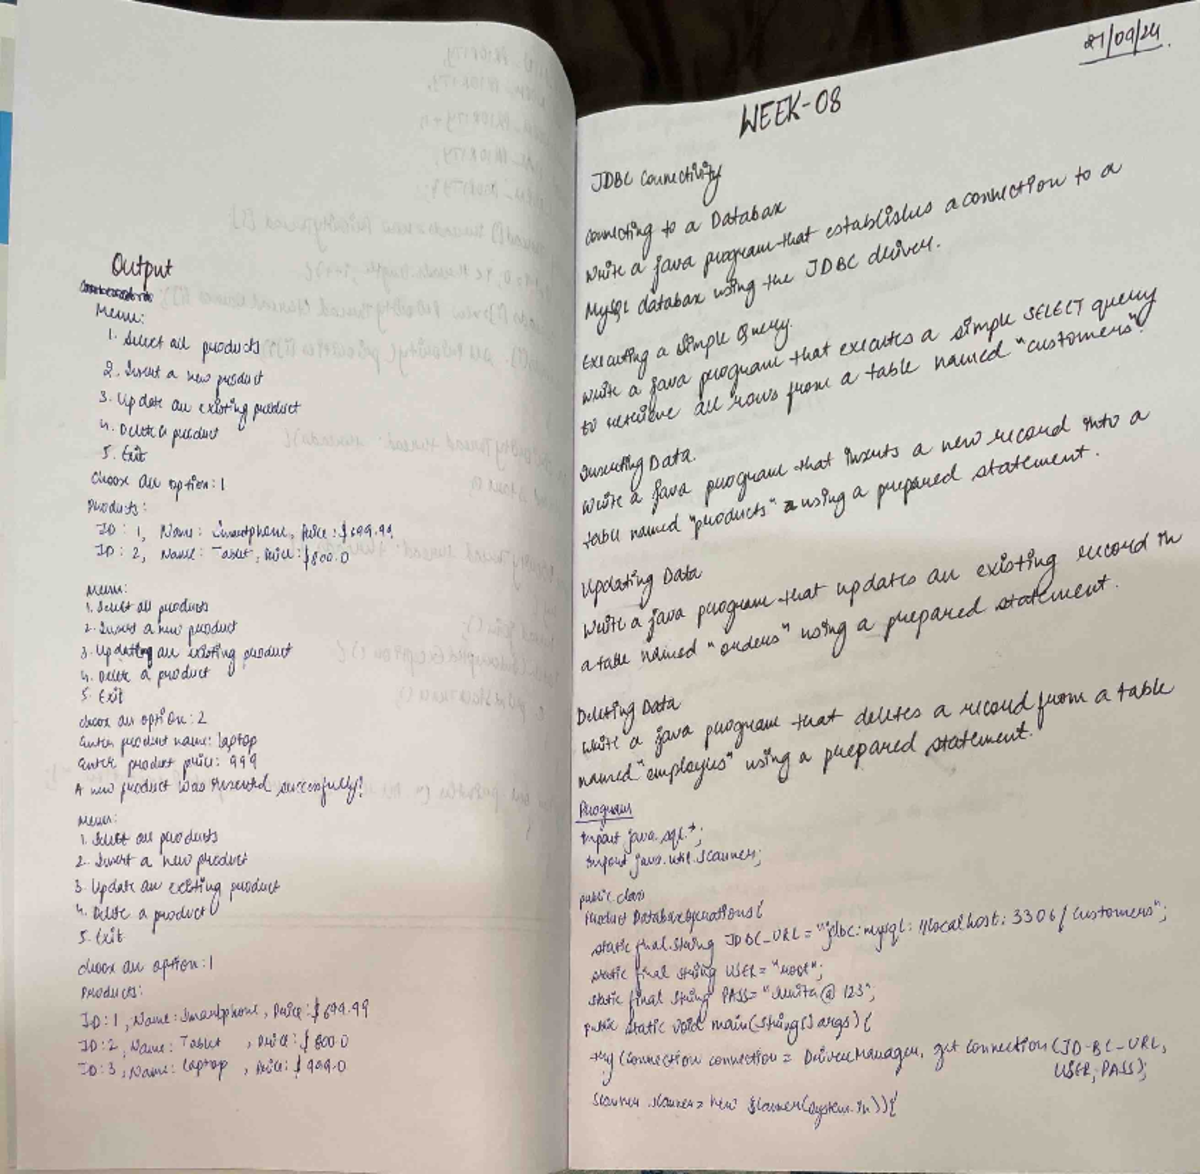 Output
Menu:
1. Select all products
2. Insert a new product
3. Update an existing product
4. Delete a product
5. Exit
Choose an option: 1
Products:
ID: 1, Name: Smartphone, Price: $699.99
ID: 2, Name: Tablet, Price: $800.0
Menu:
1. Select all products
2. Insert a new product
3. Updating an existing product
4. Delete a product
5. Exit
choose an option: 2
Enter product name: laptop
Enter product price: 999
A new product was inserted successfully!
Menu:
1. Select all products
2. Insert a new product
3. Update an existing product
4. Delete a product
5. Exit
choose an option: 1
Products:
ID: 1, Name: Smartphone, Price: $699.99
ID: 2, Name: Tablet, Price: $800.0
ID: 3, Name: laptop, Price: $999.0
21/09/24
WEEK-08
JDBC Connectivity
Connecting to a Database
Write a java program that establishes a connection to a
MySQL database using the JDBC driver.
Executing a Simple Query.
Write a java program that executes a simple SELECT query
to retrieve all rows from a table named "customers".
Inserting Data.
Write a java program that inserts a new record into a
table named "products" using a prepared statement.
Updating Data
Write a java program that updates an existing record in
a table named "orders" using a prepared statement.
Deleting Data
Write a java program that deletes a record from a table
named "employees" using a prepared statement.
Program
import java.sql.*;
import java.util.Scanner;
public class
ProductDatabaseOperations{
static final String JDBC_URL = "jdbc:mysql://localhost:3306/customers";
static final String USER = "root";
static final String PASS = "@123";
public static void main(String[] args){
try (Connection connection = DriverManager, get connection (JD-BC-URL,
USER, PASS);
Scanner scanner = new Scanner(System.in)){